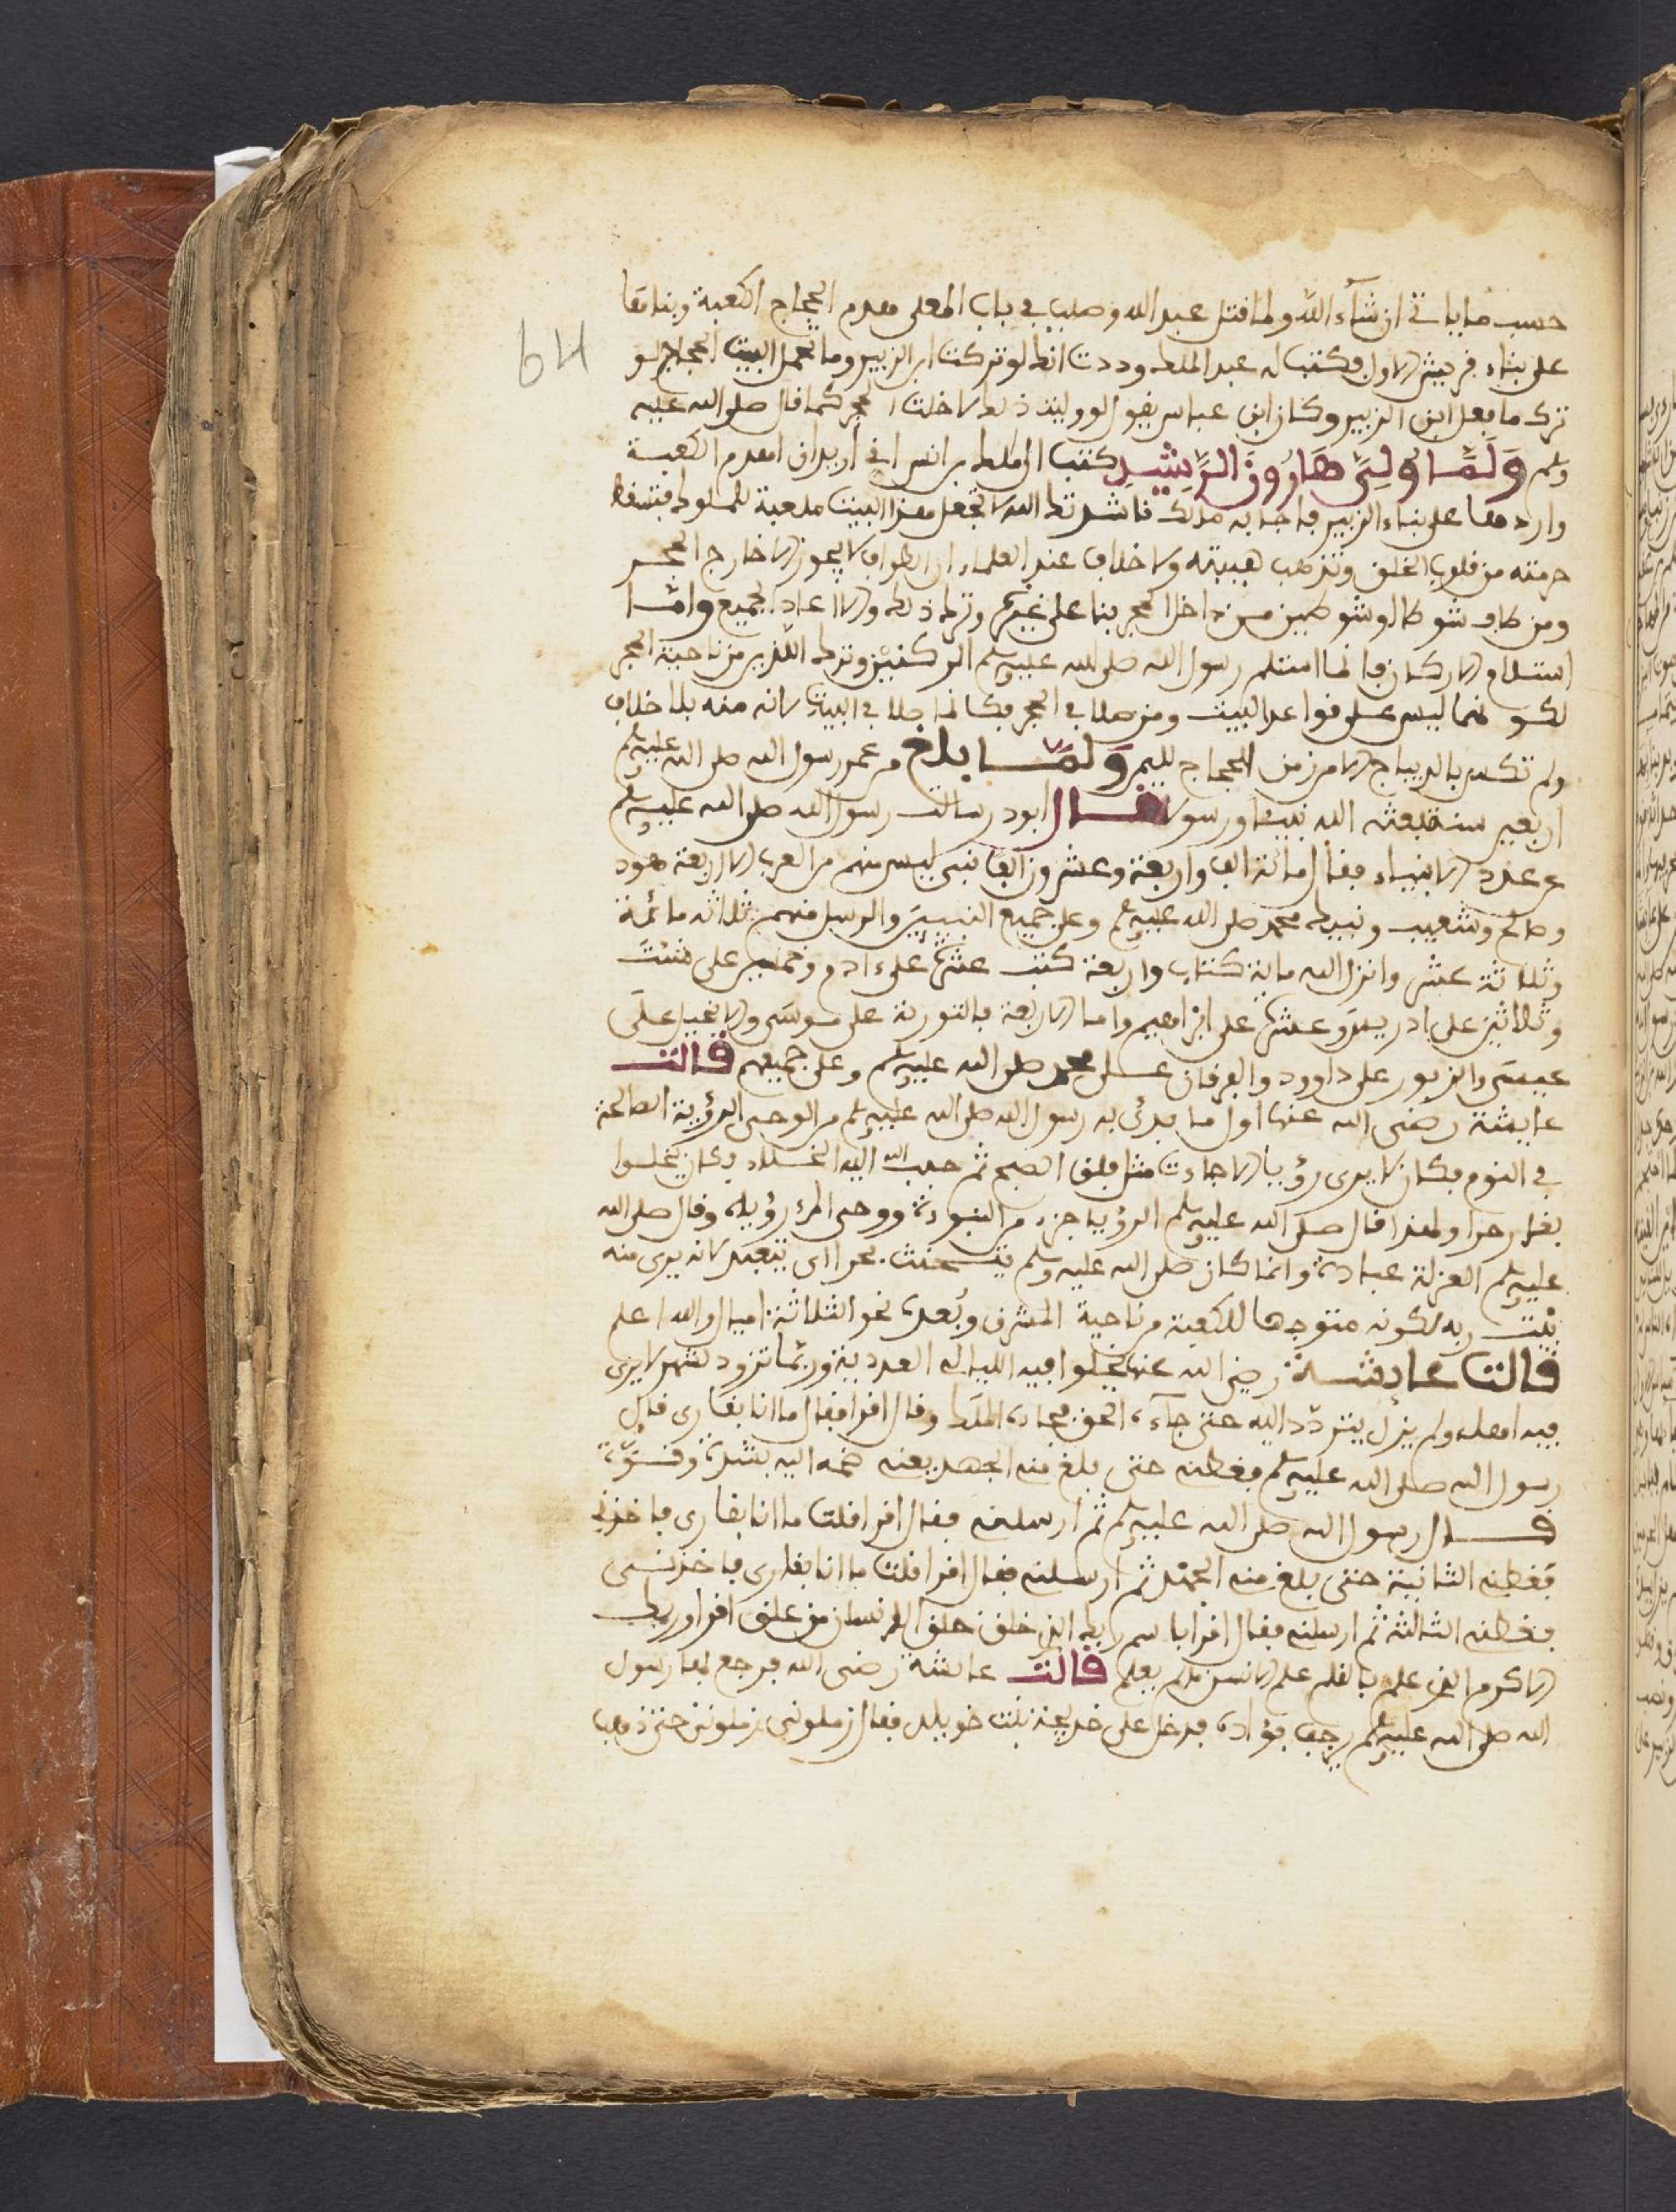 64
حسب ما ياتي ان شآء الله ولما قتل عبد الله وصلب في باب المعلى هدم الحجاج الكعبة وبناها
على بناء قريش الاول فكتب له عبد الملك وددت انك لو تركت ابن الزبير وما تحمل البيت الحجاج لو
ترك ما فعل ابن الزبير وكان ابن عباس يقول لو وليت ذلك لادخلت الحجر كما قال صلى الله عليه
وسلم وَلَمَّا وُلِيَّ هَارُونَ الرَّشِيدِ كتب الى مالك بن انس اني اريد ان اهدم الكعبة
واردها على بناء الزبير فاجابه مالك ناشدتك الله لا تجعل هذا البيت ملعبة للملوك فتسقط
حرمته من قلوب الخلق وتذهب هيبته ولا خلاف عند العلماء ان الطواف لا يجوز الا خارج الحجر
ومن طاف شوطا او شوطين من داخل الحجر بنا على غيره وترك ذلك والا اعاد الجميع وامّا
استلام الاركان فانما استلم رسول الله صلى الله عليه وسلم الركنين وترك اللذين من ناحية الحجر
لكونهما ليس على قواعد البيت ومن صلا في الحجر فكانما صلا في البيت لانه منه بلا خلاف
ولم تكس بالديباج الا من زمن الحجاج لليم وَلَمَّا بلغ من عمر رسول الله صلى الله عليه وسلم
اربعين سنة بعثه الله نبيئا ورسولا قال ابو ذر سالت رسول الله صلى الله عليه وسلم
عن عدد الانبياء فقال مائة الف واربعة وعشرون الفا نبي ليس منهم من العرب الا اربعة هود
وصالح وشعيب ونبيك محمد صلى الله عليه وسلم وعلى جميع النبيين والرسل منهم ثلاثه مائة
وثلاثة عشر وانزل الله ماية كتاب واربعة كتب عشرة على ءادم وخمسين على شيت
وثلاثين على ادريس وعشرة على ابراهيم واما الاربعة فالتورية على موسى والانجيل على
عيسى والزبور على داوود والفرقان على محمد صلى الله عليه وسلم وعلى جميعهم قالت
عايشة رضي الله عنها اول ما بدئ به رسول الله صلى الله عليه وسلم من الوحي الرؤية الصالحة
في النوم فكان لا يرى رؤيا الا جاءت مثل فلق الصبح ثم حبب الله اليه الخلاء وكان يخلوا
بغار حرا ولهذا قال صلى الله عليه وسلم الرؤيا جزء من النبوءة ووحي المرء رؤياه وقال صلى الله
عليه وسلم العزلة عبادة وانما كان صلى الله عليه وسلم يتحنث بحرا اي يتعبد لانه يرى منه
بيت ربه لكونه متوجها للكعبة من ناحية المشرق وبُعده نحو الثلاثة اميال والله اعلم
قالت عايشة رضي الله عنها يخلوا فيه الليالي العديدة وربما تزود لشهر لا يرى
فيه اهله ولم يزل يتردّد اليه حتى جآءه الحق فجاءه الملك وقال اقرا فقال ما انا بقارى قال
رسول الله صلى الله عليه وسلم فغطني حتى بلغ مني الجهد يعني ضمه اليه بشدة وقوة
قال رسول الله صلى الله عليه وسلم ثم ارسلني فقال اقرا قلت ما انا بقارى فاخذني
فغطني الثانية حتى بلغ مني الجهد ثم ارسلني فقال اقرا قلت ما انا بقارى فاخذني
فغطني الثالثة ثم ارسلني فقال اقرا باسم ربك الذي خلق خلق الانسان من علق اقرا وربك
الاكرم الذي علم بالقلم علم الانسن ما لم يعلم قالت عائشة رضي الله فرجع لها رسول
الله صلى الله عليه وسلم يرجف فؤاده فدخل على خديجة بنت خويلد فقال زملوني زملوني حتى ذهب